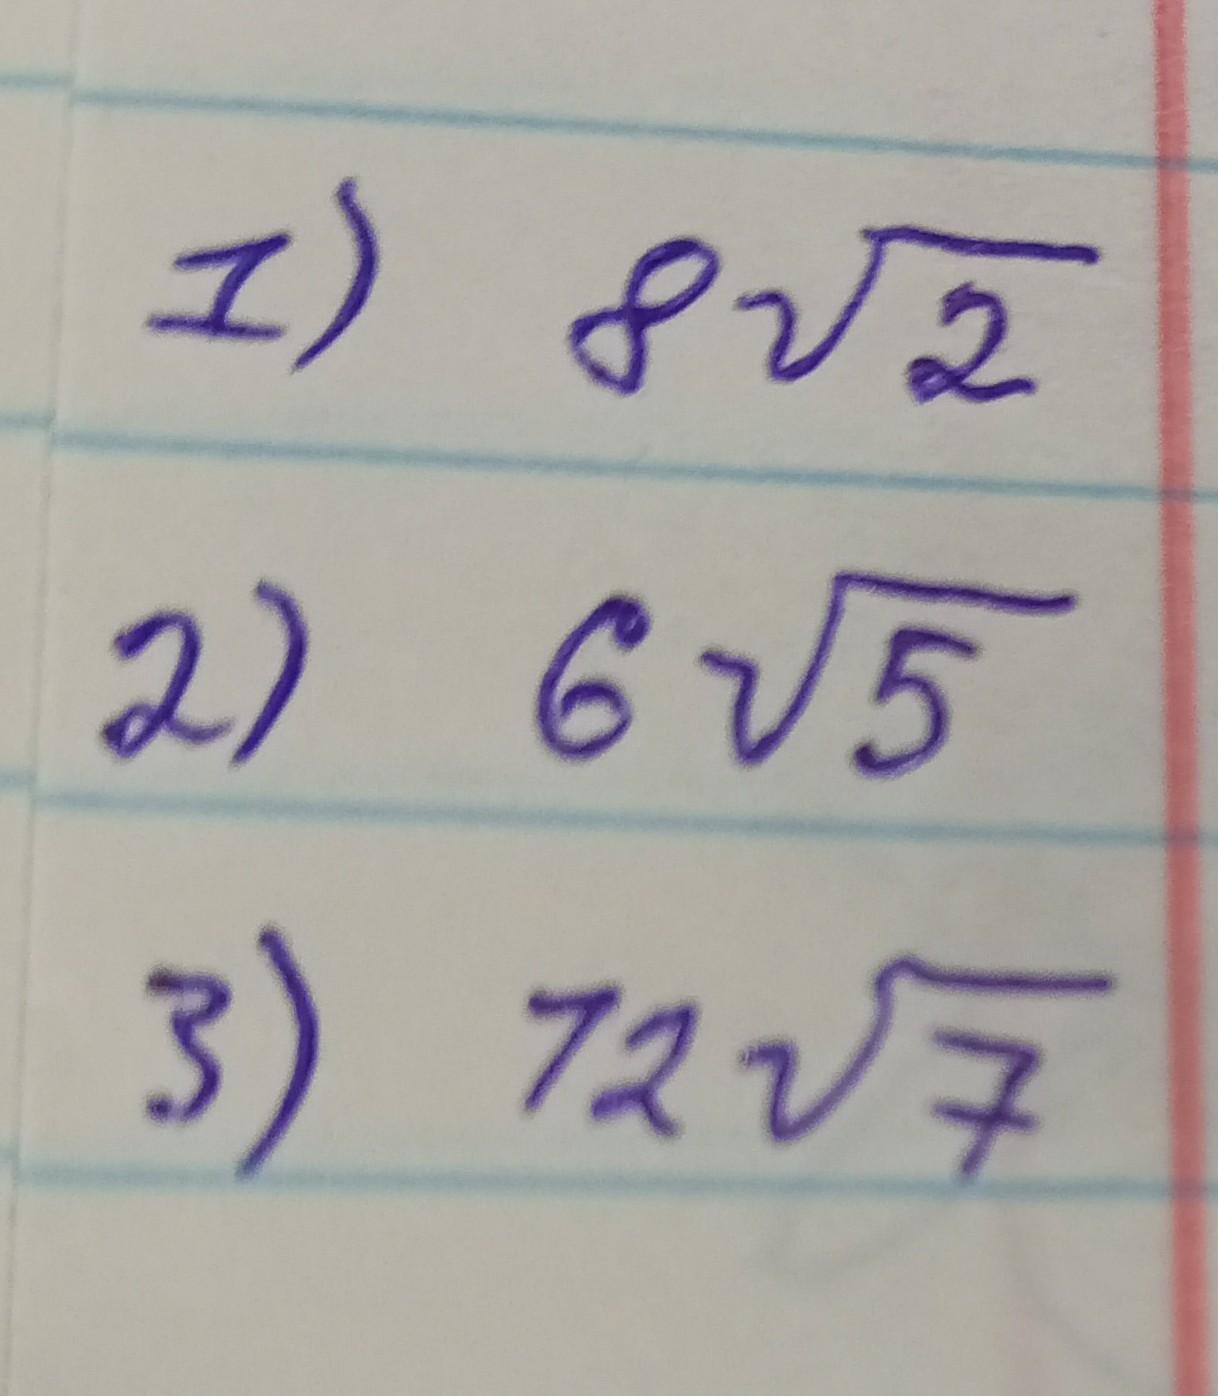 1) 8√2
2) 6√5
3) 12√7